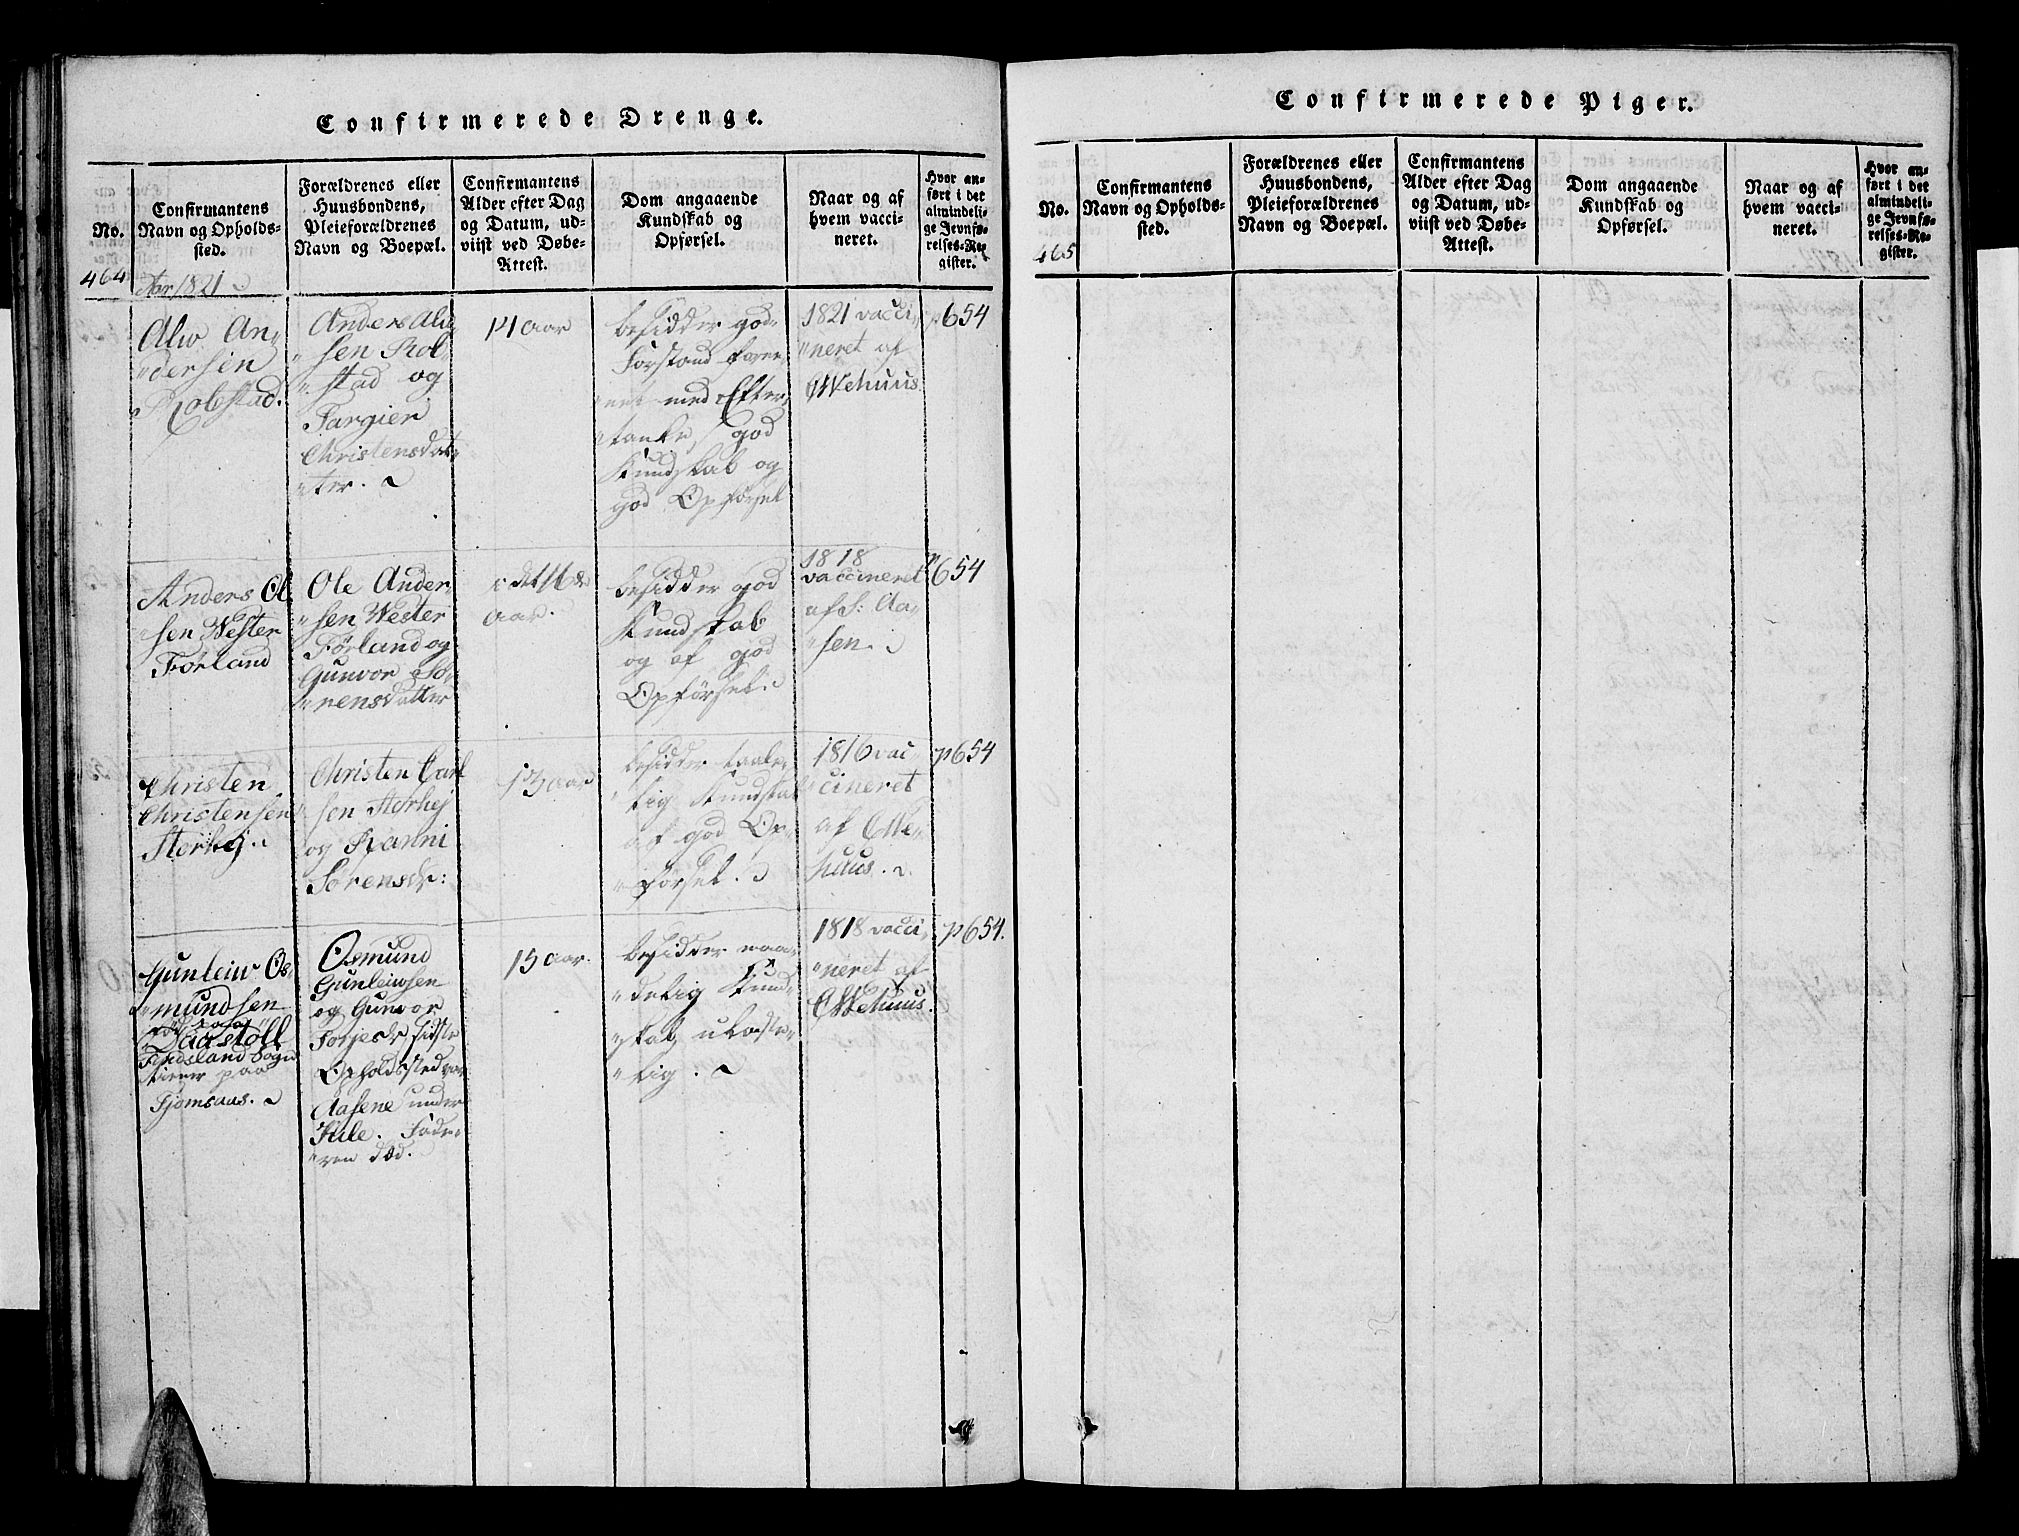 Confirmerede Drenge.
No.
Confirmantens
Navn og Opholds-
sted.
Forældrenes eller
Huusbondens,
Pleieforældrenes
Navn og Boepæl.
Confirmantens
Alder efter Dag
og Datum, ud-
viist ved Døbe-
Attest.
Dom angaaende
Kundskab og
Opførsel.
Naar og af
hvem vacci-
neret.
Hvor an-
ført i det
almindeli-
ge Jevnfø-
relses-Re-
gister.
464
Aar 1821
Alw An-
dersen
Robstad.
Anders Alw
sen Rob-
stad og
Targier
Christensdat-
ter.
14 aar
besidder god
Forstand foree-
net med Efter-
tanke, god
Kundskab og
god Opførsel
1821 vacci-
neret af
Wehuus.
p 654
Anders Ol
sen Wester
Førland
Ole Ander-
sen Wester
Førland og
Gunvor Sø-
rensdatter
i det 16de
aar.
besidder god
Kundskab
og af god
Opførsel.
1818
vaccineret
af S: Aa-
sen.
p 654
Christen
Christensen
Størhej.
Christen Carl
sen Størhej
og Ranni
Sørensdr:
15 aar
besidder taale-
lig Kundskab
af god Op-
førsel.
1816 vac
cineret
af We-
huus.
p 654
Gunleiw Os-
mundsen
Daastøll
Findsland Sogn
tiener paa
Fjomsaas.
Osmund
Gunleiwsen
og Gunvor
Torjesdr sidste
Opholdssted var
Aasene under
Kile. Fade-
ren død.
15 aar.
besidder maa-
delig Kund-
skab, ulaste-
lig.
1818 vacci-
neret af
Wehuus.
p 654.
Confirmerede Piger.
No.
Confirmantens
Navn og Opholds-
sted.
Forældrenes eller
Huusbondens,
Pleieforældrenes
Navn og Boepæl.
Confirmantens
Alder efter Dag
og Datum, ud-
viist ved Døbe-
Attest.
Dom angaaende
Kundskab og
Opførsel.
Naar og af
hvem vacci-
neret.
Hvor an-
ført i det
almindeli-
ge Jevnfø-
relses-Re-
gister.
465